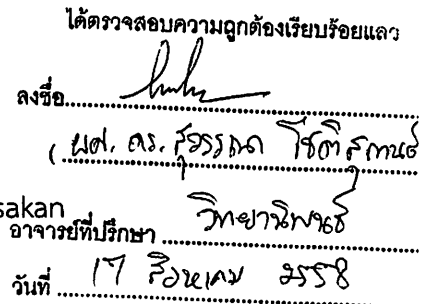 ได้ตรวจสอบความถูกต้องเรียบร้อยแลว
ลงชื่อ
( ผศ. ดร. สุวรรณา โชติสุกานต์
sakan
อาจารย์ที่ปรึกษา วิทยานิพนธ์
วันที่ 17 สิงหาคม 2558